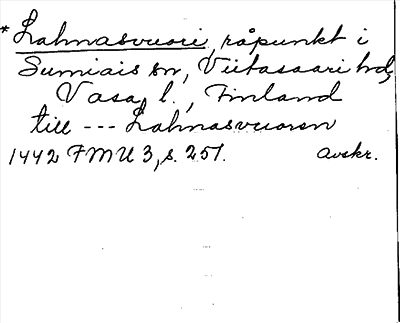 *Lahnasvuori, råpunkt i
Sumiais sn, Viitasaari hd,
Vasa l., Finland
till --- Lahnasvuoren
1442 FMU 3, s. 251. Avskr.